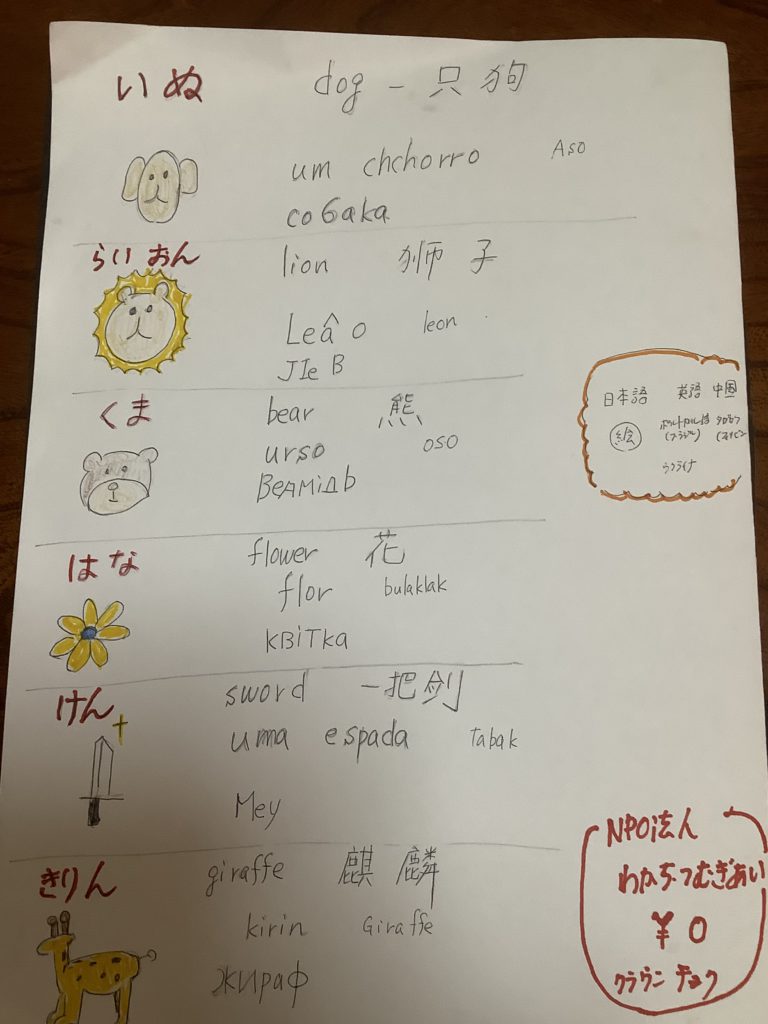 いぬ dog - 一只狗
um chchorro Aso
собака
らいおん lion 狮子
Leâo leon
JIeB
くま bear 熊
urso oso
ВеАМідЬ
はな flower 花
flor bulaklak
KBiTKa
けん sword 一把剑
uma espada Tabak
Mey
きりん giraffe 麒麟
kirin Giraffe
жираф
日本語 英語 中国
絵 (ブラジル)
ウクライナ
NPO法人
わかちつむぎあい
¥0
クラウン チョク